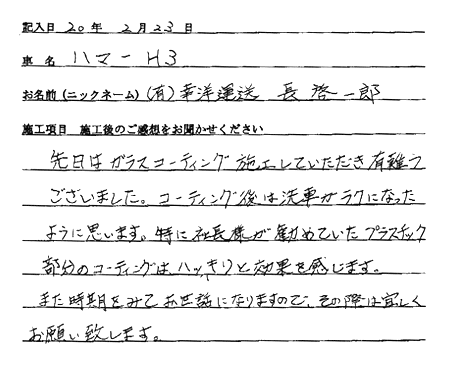 記入日 20年 2月23日
車 名 ハマー H3
お名前 (ニックネーム) (有)幸洋運送 長 啓一郎
施工項目 施工後のご感想をお聞かせください
先日はガラスコーティング施工していただき有難う
ございました。コーティング後は洗車がラクになった
ように思います。特に社長様が勧めていたプラスチック
部分のコーティングはハッキリと効果を感じます。
また時期をみてお世話になりますので、その際は宜しく
お願い致します。